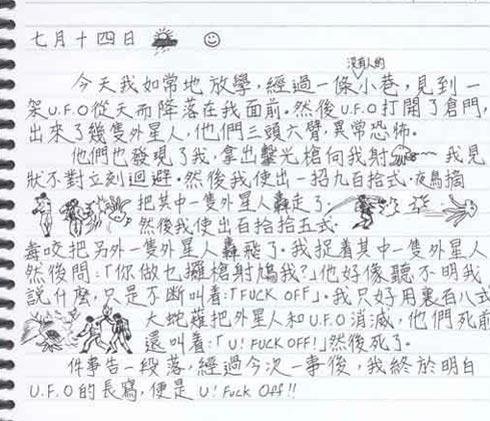 七月十四日
沒有人的
今天我如常地放學,經過一條小巷,見到一
架U.F.O從天而降落在我面前。然後U.F.O打開了倉門,
出來了幾隻外星人,他們三頭六臂,異常恐怖。
他們也發現了我,拿出擊光槍向我射 我見
狀不對立刻迴避。然後我使出一招九百拾式·夜鳥摘
把其中一隻外星人轟走了
然後我使出百拾拾五式·
毒咬把另外一隻外星人轟飛了。我捉着其中一隻外星人
然後問:「你做乜攞槍射鳩我?」他好像聽不明我
說什麼,只是不斷叫着:「FUCK OFF」。我只好用裏百八式
大蛇薙把外星人和U.F.O消滅,他們死前
還叫着:「U! FUCK OFF!」然後死了。
件事告一段落,經過今次一事後,我終於明白
U.F.O的長寫,便是U! Fuck Off!!